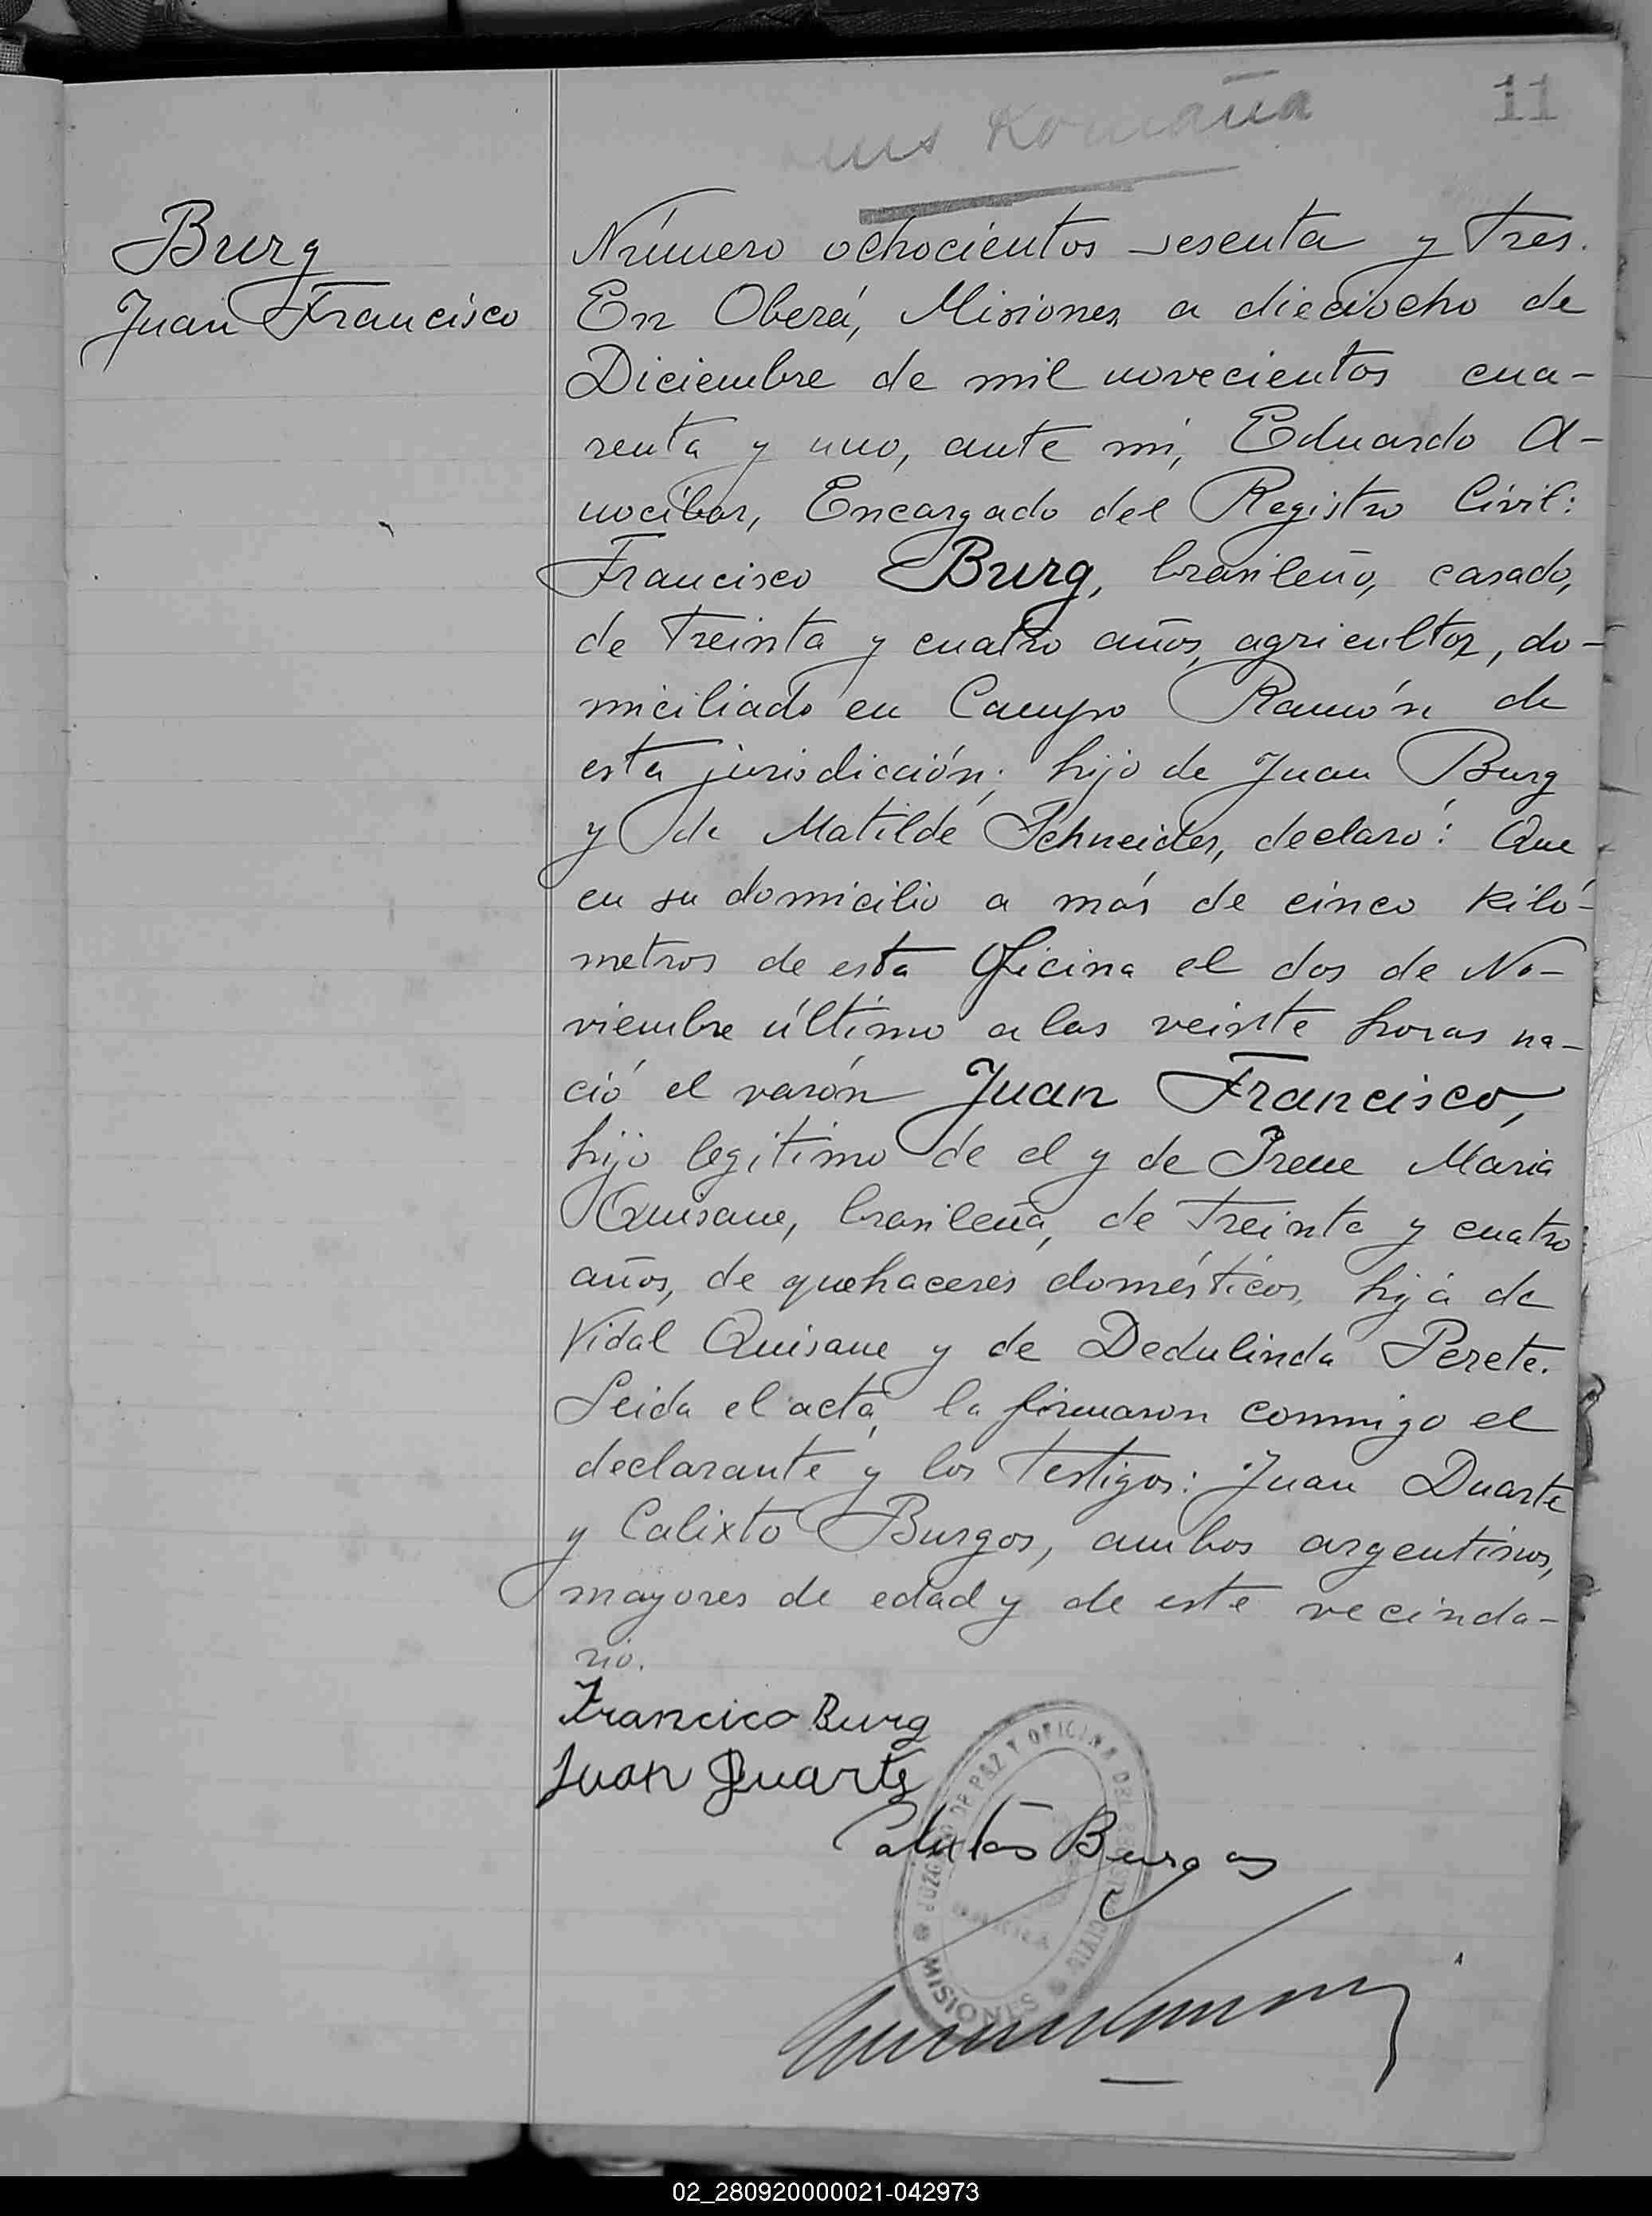 11
Romaña
Burg
Juan Francisco
Número ochocientos sesenta y tres.
En Oberá, Misiones, a dieciocho de
Diciembre de mil novecientos cua-
renta y uno, ante mí, Eduardo A-
nocibar, Encargado del Registro Civil:
Francisco Burg, brasileño, casado,
de treinta y cuatro años, agricultor, do-
miciliado en Campo Ramón de
esta jurisdicción; hijo de Juan Burg
y de Matilde Schneider, declaró: Que
en su domicilio a más de cinco kiló-
metros de esta Oficina el dos de No-
viembre último a las veinte horas na-
ció el varón Juan Francisco,
hijo legítimo de el y de Irene Maria
Quisane, brasileña, de treinta y cuatro
años, de quehaceres domésticos, hija de
Vidal Quisane y de Dedulinda Perete.
Leida el acta, la firmaron conmigo el
declarante y los testigos: Juan Duarte
y Calixto Burgos, ambos argentinos,
mayores de edad y de este vecinda-
rio.
Francico Burg
Juan Duarte
JUZGADO DE PAZ Y OFICINA DEL REGISTRO CIVIL
MISIONES
Calixto Burgos
02_280920000021-042973